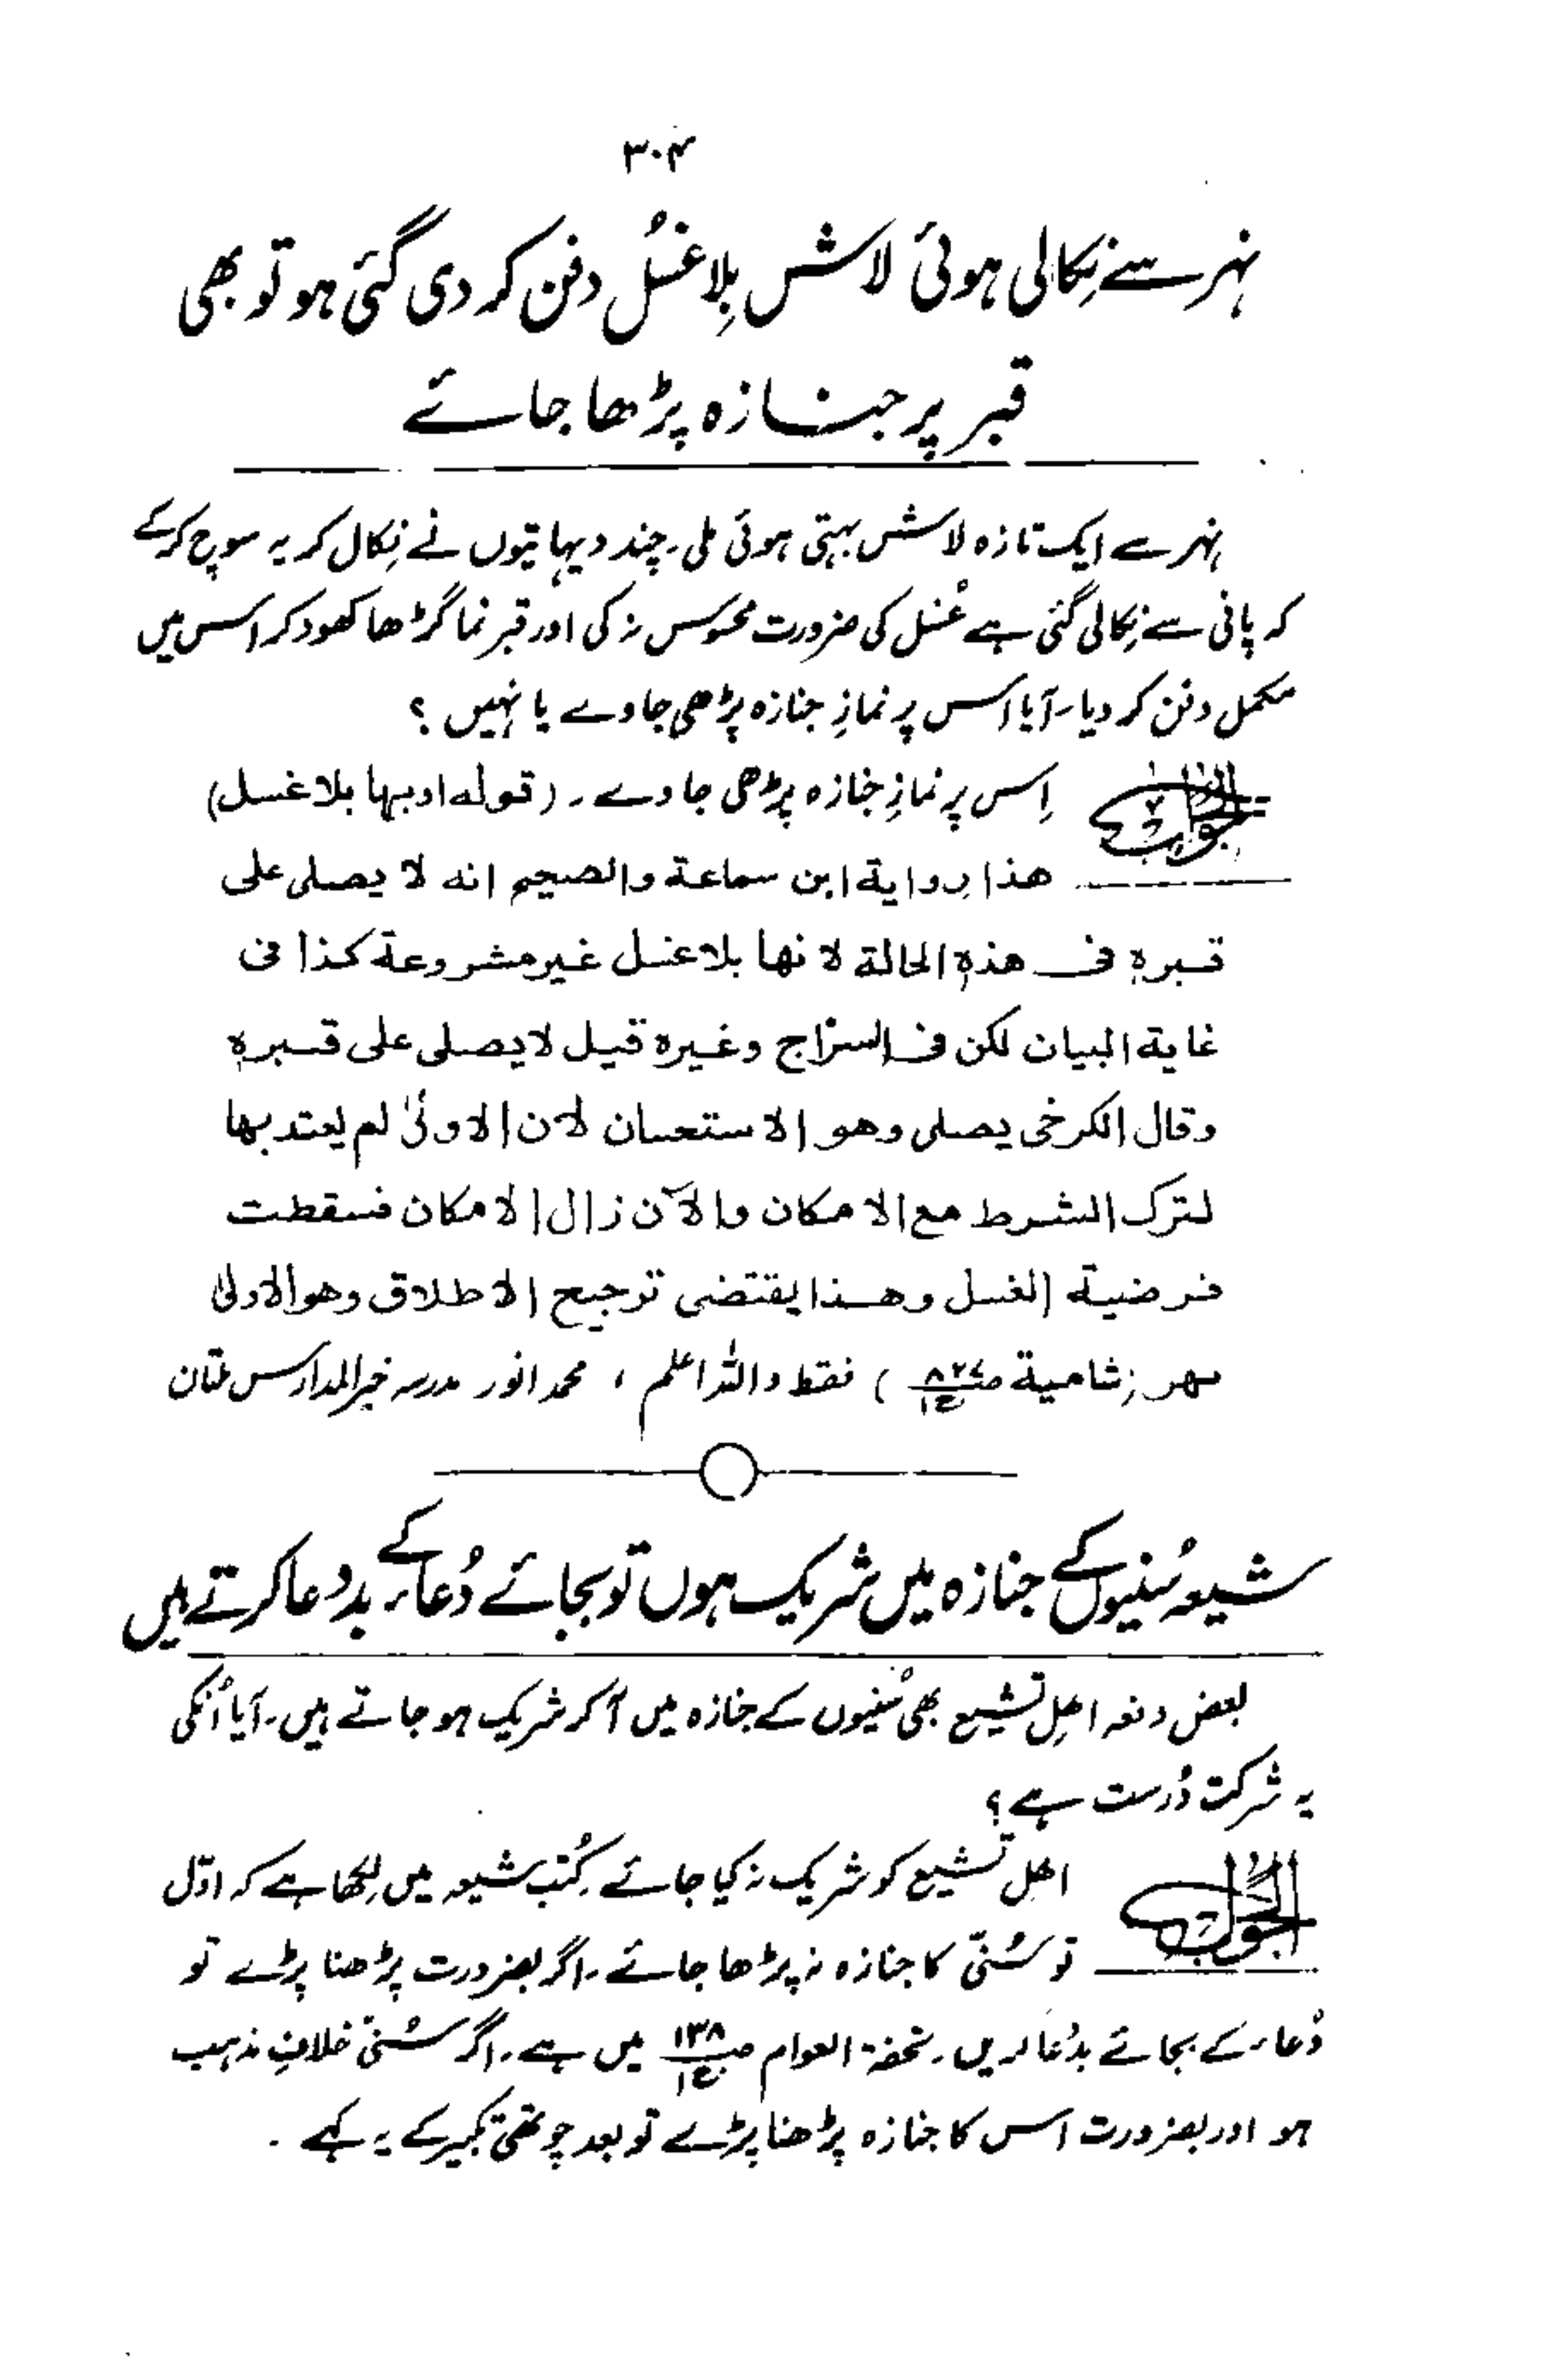 ۳۰۴
نہر سے نِکالی ہوئی لاش بِلا غسُل دفن کر دی گئی ہو تو بھی
قبر پر جنازہ پڑھا جائے
نہر سے ایک تازہ لاش بہتی ہوئی ملی۔ چند دیہاتیوں نے نِکال کر یہ سوچ کر کے
کہ پانی سے نِکالی گئی ہے غُسل کی ضرورت محسوس نہ کی اور قبر نما گڑھا کھود کر اس میں
مکمل دفن کر دیا۔ آیا اس پر نمازِ جنازہ پڑھی جاوے یا نہیں ؟
الجواب اِس پر نمازِ جنازہ پڑھی جاوے۔ (قوله او بها بلا غسل)
هذا رواية ابن سماعة والصحيح انه لا يصلى على
قبره فى هذه الحالة لانها بلا غسل غير مشروعة كذا فى
غاية البيان لكن فى السراج وغيره قيل لا يصلى على قبره
وقال الكرخى يصلى وهو الاستحسان لان الاولىٰ لم يعتد بها
لترك الشرط مع الامكان والآن زال الامكان فسقطت
فرضية الغسل وهذا يقتضى ترجيح الاطلاق وهو الاولىٰ
نهر (شامية ص۸۲۷ ج۱) فقط واللہ اعلم ، محمد انور مدرسہ خیر المدارس ملتان
شیعہ سُنیوں کے جنازہ میں شریک ہوں تو بجائے دُعاء کے بددعا کرتے ہیں
بعض دفعہ اہلِ تشیع بھی سُنیوں کے جنازہ میں آ کر شریک ہو جاتے ہیں۔ آیا اُنکی
یہ شرکت دُرست ہے ؟
الجواب اہلِ تشیع کو شریک نہ کیا جائے۔ کُتب شیعہ میں لِکھا ہے کہ اوّل
تو سُنّی کا جنازہ نہ پڑھا جائے۔ اگر بضرورت پڑھنا پڑے تو
دُعاء کے بجائے بددُعا کریں۔ تحفۃ العوام ص۱۳۸ ج۱ میں ہے۔ اگر سُنّی خلافِ مذہب
ہو اور بضرورت اس کا جنازہ پڑھنا پڑے تو بعد چوتھی تکبیر کے یہ کہے ۔